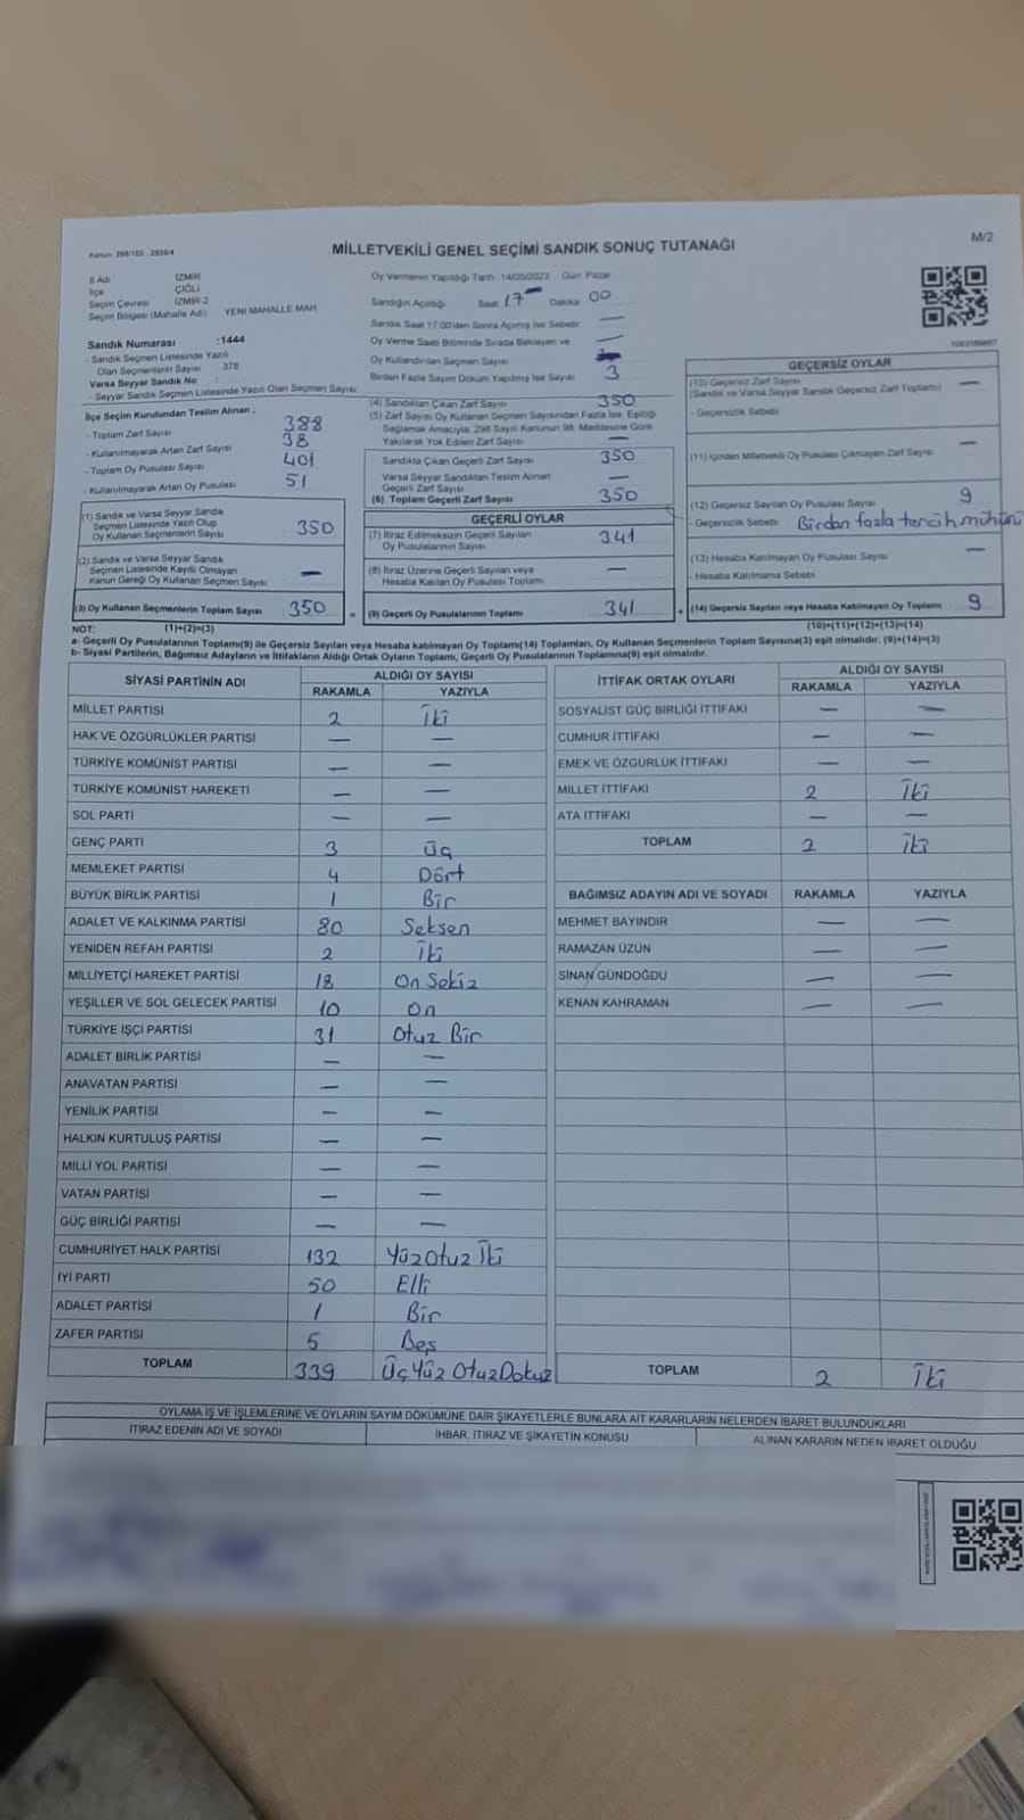 MİLLETVEKİLİ GENEL SEÇİMİ SANDIK SONUÇ TUTANAĞI
M/2
İl Adı İZMİR
İlçe ÇİĞLİ
Seçim Çevresi İZMİR-2
Seçim Bölgesi (Mahalle Adı) YENİ MAHALLE MAH.
Sandık Numarası :1444
- Sandık Seçmen Listesinde Yazılı
Olan Seçmenlerin Sayısı 378
Varsa Seyyar Sandık No :
- Seyyar Sandık Seçmen Listesinde Yazılı Olan Seçmen Sayısı
İlçe Seçim Kurulundan Teslim Alınan ;
- Toplam Zarf Sayısı 388
- Kullanılmayarak Artan Zarf Sayısı 38
- Toplam Oy Pusulası Sayısı 401
- Kullanılmayarak Artan Oy Pusulası 51
(1) Sandık ve Varsa Seyyar Sandık
Seçmen Listesinde Yazılı Olup
Oy Kullanan Seçmenlerin Sayısı 350
(2) Sandık ve Varsa Seyyar Sandık
Seçmen Listesinde Kayıtlı Olmayan
Kanun Gereği Oy Kullanan Seçmen Sayısı —
(3) Oy Kullanan Seçmenlerin Toplam Sayısı 350
Oy Vermenin Yapıldığı Tarih :14/05/2023 Gün Pazar
Sandığın Açılışı Saat 17 Dakika 00
Sandık Saat 17:00'den Sonra Açılmış İse Sebebi —
Oy Verme Saati Bitiminde Sırada Bekleyen ve —
Oy Kullandırılan Seçmen Sayısı
Birden Fazla Sayım Döküm Yapılmış İse Sayısı 3
(4) Sandıktan Çıkan Zarf Sayısı 350
(5) Zarf Sayısı Oy Kullanan Seçmen Sayısından Fazla İse, Eşitliği
Sağlamak Amacıyla, 298 Sayılı Kanunun 98. Maddesine Göre
Yakılarak Yok Edilen Zarf Sayısı —
Sandıkta Çıkan Geçerli Zarf Sayısı 350
Varsa Seyyar Sandıktan Teslim Alınan
Geçerli Zarf Sayısı —
(6) Toplam Geçerli Zarf Sayısı 350
GEÇERLİ OYLAR
(7) İtiraz Edilmeksizin Geçerli Sayılan
Oy Pusulalarının Sayısı 341
(8) İtiraz Üzerine Geçerli Sayılan veya
Hesaba Katılan Oy Pusulası Toplamı —
= (9) Geçerli Oy Pusulalarının Toplamı 341
GEÇERSİZ OYLAR
(10) Geçersiz Zarf Sayısı —
(Sandık ve Varsa Seyyar Sandık Geçersiz Zarf Toplamı)
- Geçersizlik Sebebi
(11) İçinden Milletvekili Oy Pusulası Çıkmayan Zarf Sayısı —
(12) Geçersiz Sayılan Oy Pusulası Sayısı 9
- Geçersizlik Sebebi Birdan fazla tercih mühürü
(13) Hesaba Katılmayan Oy Pusulası Sayısı —
- Hesaba Katılmama Sebebi
+ (14) Geçersiz Sayılan veya Hesaba Katılmayan Oy Toplamı 9
NOT: (1)+(2)=(3) (10)+(11)+(12)+(13)=(14)
a- Geçerli Oy Pusulalarının Toplamı(9) ile Geçersiz Sayılan veya Hesaba katılmayan Oy Toplamı(14) Toplamları, Oy Kullanan Seçmenlerin Toplam Sayısına(3) eşit olmalıdır. (9)+(14)=(3)
b- Siyasi Partilerin, Bağımsız Adayların ve İttifakların Aldığı Ortak Oyların Toplamı, Geçerli Oy Pusulalarının Toplamına(9) eşit olmalıdır.
SİYASİ PARTİNİN ADI ALDIĞI OY SAYISI
RAKAMLA YAZIYLA
MİLLET PARTİSİ 2 İki
HAK VE ÖZGÜRLÜKLER PARTİSİ — —
TÜRKİYE KOMÜNİST PARTİSİ — —
TÜRKİYE KOMÜNİST HAREKETİ — —
SOL PARTİ — —
GENÇ PARTİ 3 Üç
MEMLEKET PARTİSİ 4 Dört
BÜYÜK BİRLİK PARTİSİ 1 Bir
ADALET VE KALKINMA PARTİSİ 80 Seksen
YENİDEN REFAH PARTİSİ 2 İki
MİLLİYETÇİ HAREKET PARTİSİ 18 On Sekiz
YEŞİLLER VE SOL GELECEK PARTİSİ 10 On
TÜRKİYE İŞÇİ PARTİSİ 31 Otuz Bir
ADALET BİRLİK PARTİSİ — —
ANAVATAN PARTİSİ — —
YENİLİK PARTİSİ — —
HALKIN KURTULUŞ PARTİSİ — —
MİLLİ YOL PARTİSİ — —
VATAN PARTİSİ — —
GÜÇ BİRLİĞİ PARTİSİ — —
CUMHURİYET HALK PARTİSİ 132 Yüz Otuz İki
İYİ PARTİ 50 Elli
ADALET PARTİSİ 1 Bir
ZAFER PARTİSİ 5 Beş
TOPLAM 339 Üç Yüz Otuz Dokuz
İTTİFAK ORTAK OYLARI ALDIĞI OY SAYISI
RAKAMLA YAZIYLA
SOSYALİST GÜÇ BİRLİĞİ İTTİFAKI — —
CUMHUR İTTİFAKI — —
EMEK VE ÖZGÜRLÜK İTTİFAKI — —
MİLLET İTTİFAKI 2 İki
ATA İTTİFAKI — —
TOPLAM 2 İki
BAĞIMSIZ ADAYIN ADI VE SOYADI RAKAMLA YAZIYLA
MEHMET BAYINDIR — —
RAMAZAN UZUN — —
SİNAN GÜNDOĞDU — —
KENAN KAHRAMAN — —
TOPLAM 2 İki
OYLAMA İŞ VE İŞLEMLERİNE VE OYLARIN SAYIM DÖKÜMÜNE DAİR ŞİKAYETLERLE BUNLARA AİT KARARLARIN NELERDEN İBARET BULUNDUKLARI
İTİRAZ EDENİN ADI VE SOYADI İHBAR, İTİRAZ VE ŞİKAYETİN KONUSU ALINAN KARARIN NEDEN İBARET OLDUĞU